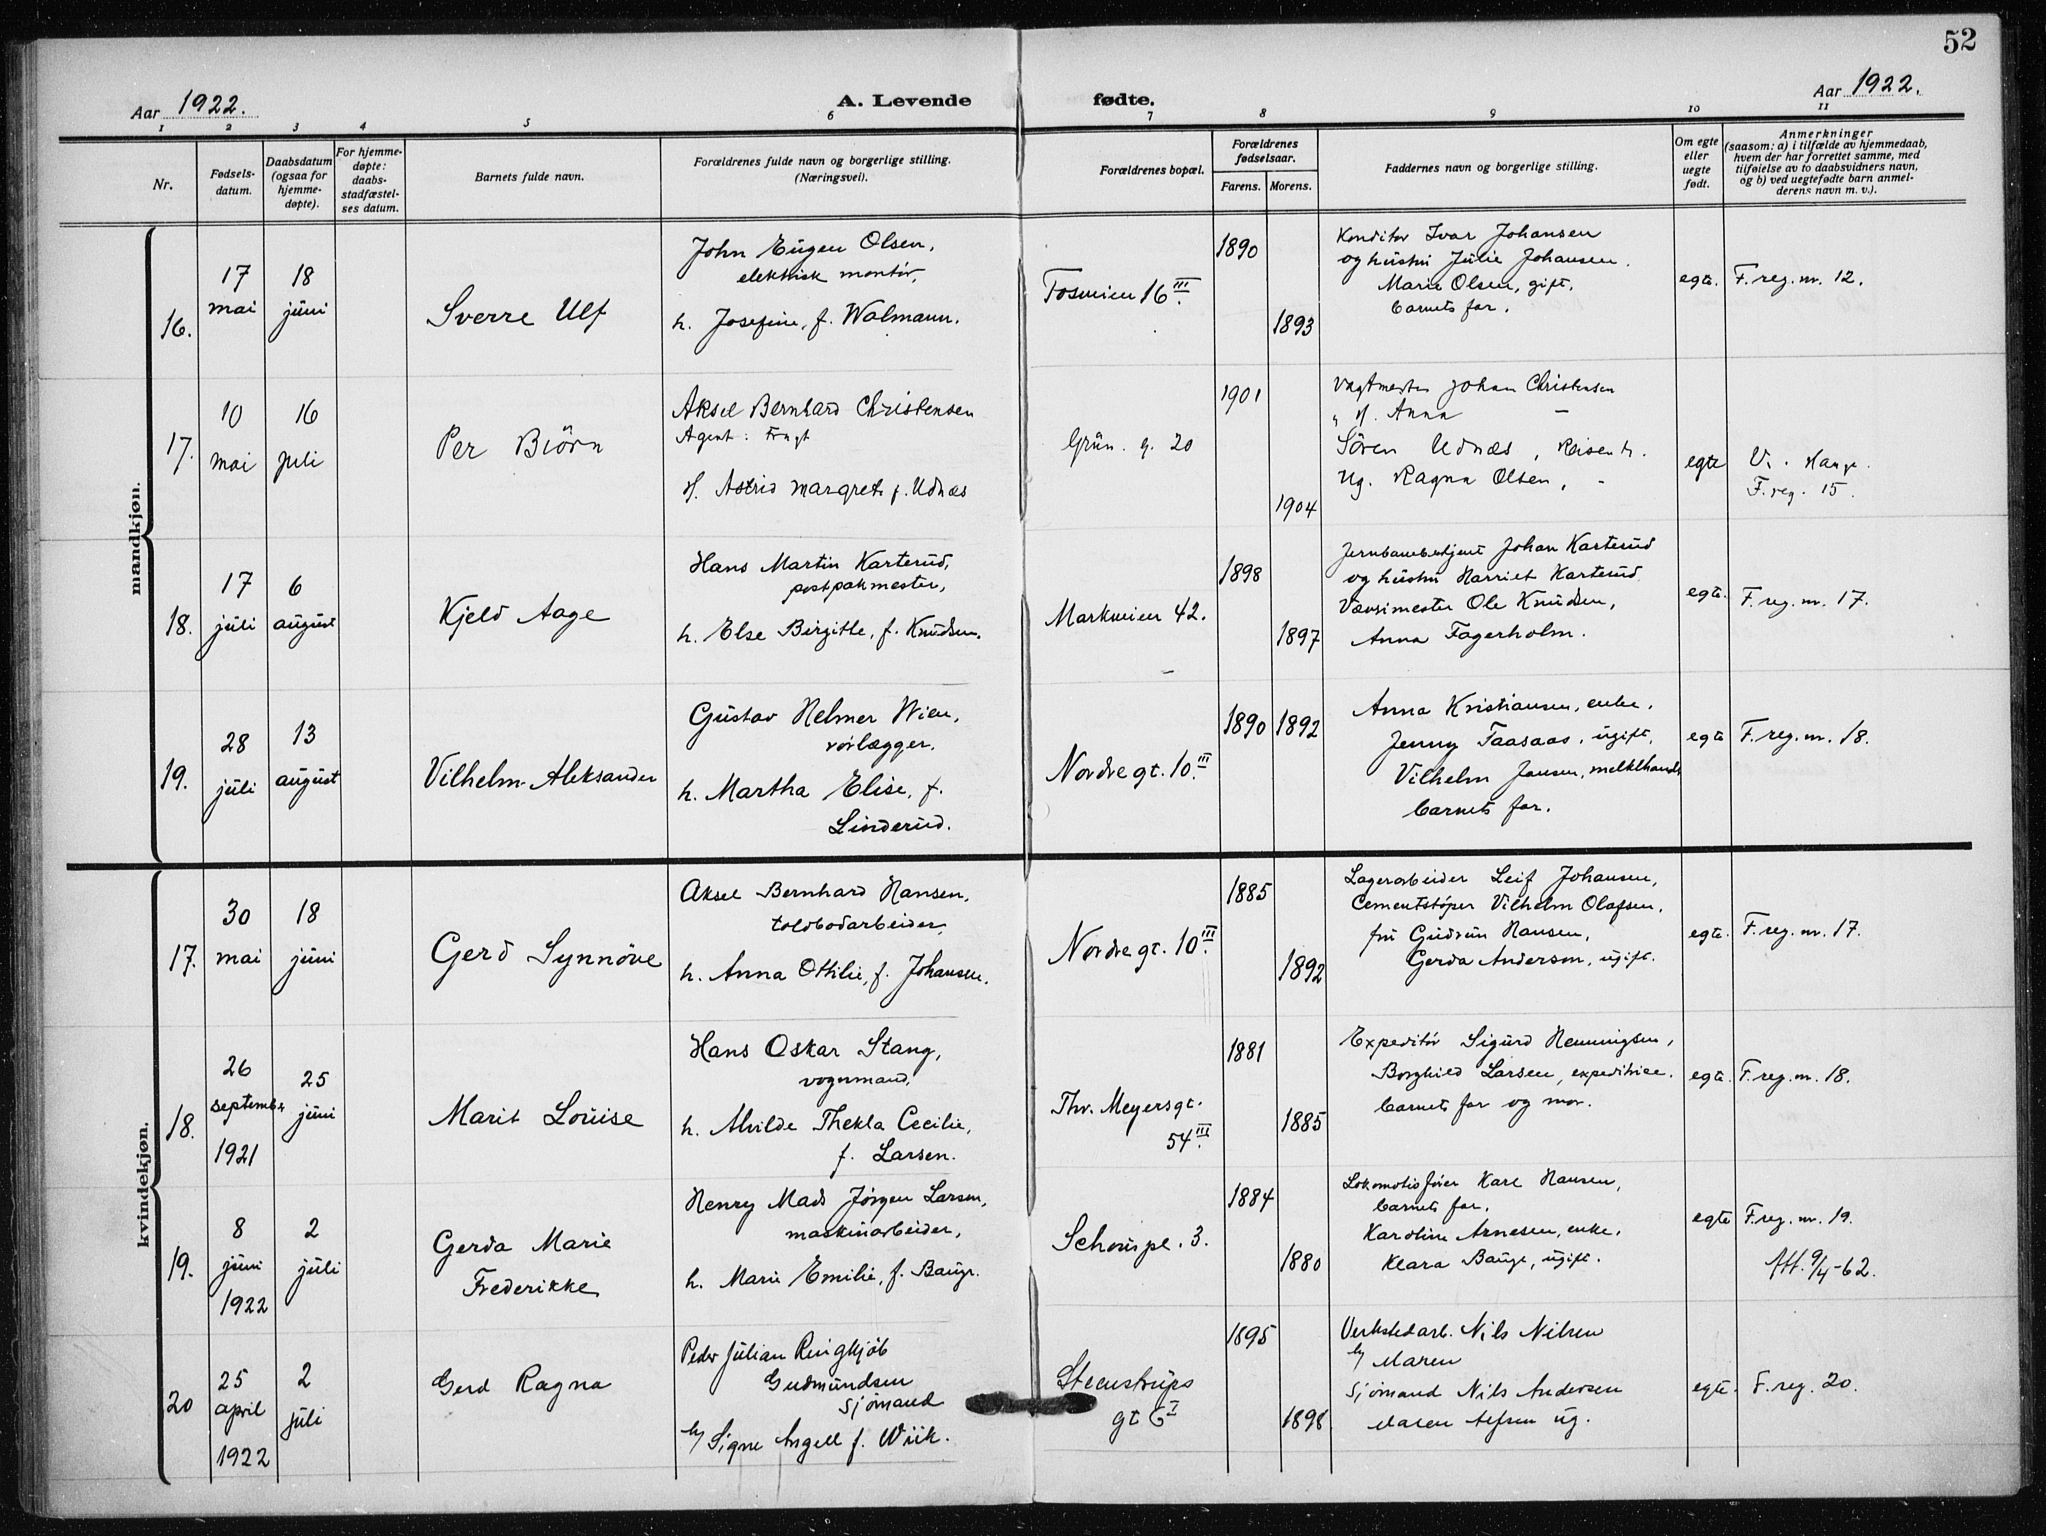 52
Aar 1922.
A. Levende fødte.
Aar 1922.
1 2 3 4 5 6 7 8 9 10 11
Nr.
Fødsels-
datum.
Daabsdatum
(ogsaa for
hjemme-
døpte).
For hjemme-
døpte:
daabs-
stadfæstel-
ses datum.
Barnets fulde navn.
Forældrenes fulde navn og borgerlige stilling.
(Næringsvei).
Forældrenes bopæl.
Forældrenes
fødselsaar.
Farens. Morens.
Faddernes navn og borgerlige stilling.
Om egte
eller
uegte
født.
Anmerkninger
(saasom: a) i tilfælde av hjemmedaab,
hvem der har forrettet samme, med
tilføielse av to daabsvidners navn,
og b) ved uegtefødte barn anmel-
derens navn m. v.).
mandkjøn.
16.
17
mai
18
juni
Sverre Ulf
John Eugen Olsen,
elektrisk montør,
h. Josefine, f. Walmann.
Tosveien 16 III.
1890
1893
Konditor Ivar Johansen
og hustru Julie Johansen.
Marie Olsen, gift.
barnets far.
egte.
F. reg. nr. 12.
17.
10
mai
16
juli
Per Biörn
Aksel Bernhard Christensen
Agent: Fragt
H. Astrid Margrete f. Udnæs
Grün. g. 20
1901
1904
Vagtmester Johan Christensen
" H. Anna -
Sören Udnæs, Reisende.
Ug. Ragna Olsen, -
egte
V. Hauge.
F. reg. 15.
18.
17
juli
6
august
Kjeld Aage
Hans Martin Karterud,
postpakmester,
h. Else Birgitte, f. Knudsen.
Markveien 42.
1898
1897
Jernbanebetjent Johan Karterud
og hustru Harriet Karterud
Vævsimester Ole Knudsen,
Anna Fagerholm.
egte.
F. reg. nr. 17.
19.
28
juli
13
august
Vilhelm Aleksander
Gustav Helmer Wien,
rørlægger.
h. Martha Elise, f.
Linderud.
Nordre gt. 10. III
1890 1892
Anna Kristiansen, enke.
Jenny Taasaas, ugift,
Vilhelm Jansen, melkhandl
barnets far.
egte
F. reg. nr. 18.
kvindekjøn.
17.
30
mai
18
juni
Gerd Synnöve
Aksel Bernhard Hansen,
toldbodarbeider,
h. Anna Othilie, f. Johansen.
Nordre gt. 10 III.
1885
1892
Lagerarbeider Leif Johansen,
Cementstøper Vilhelm Olafsen,
fru Gudrun Hansen,
Gerda Anderson, ugift.
egte.
F. reg. nr. 17.
18.
26
september
1921
25
juni
Marit Louise
Hans Oskar Stang,
vognmand,
h. Alvilde Thekla Cecilie,
f. Larsen.
Thv. Meyersgt.
54 III.
1881
1885
Expeditør Sigurd Henningsen,
Borghild Larsen, expeditrice.
barnets far og mor.
egte.
F. reg. nr. 18.
19.
8
juni
1922
2
juli
Gerda Marie
Frederikke
Henry Mads Jørgen Larsen,
maskinarbeider,
h. Marie Emilie, f. Bauge.
Schouspl. 3.
1884
1880
Lokomotivfører Karl Hansen,
barnets far,
Karoline Arnesen, enke.
Klara Bauge, ugift.
egte
F. reg. nr. 19.
Att. 9/4-62.
20
25
april
1922
2
juli
Gerd Ragna
Peder Julian Ringkjøb
Gudmundsen
sjømand
h/ Signe Angell f. Wiik.
Steenstrups
gt 6 I
1895
1898
Verkstedarb. Nils Nilsen
h/ Maren
Sjømand Nils Andersen
Maren Alfsen ug.
egte.
F. reg. 20.